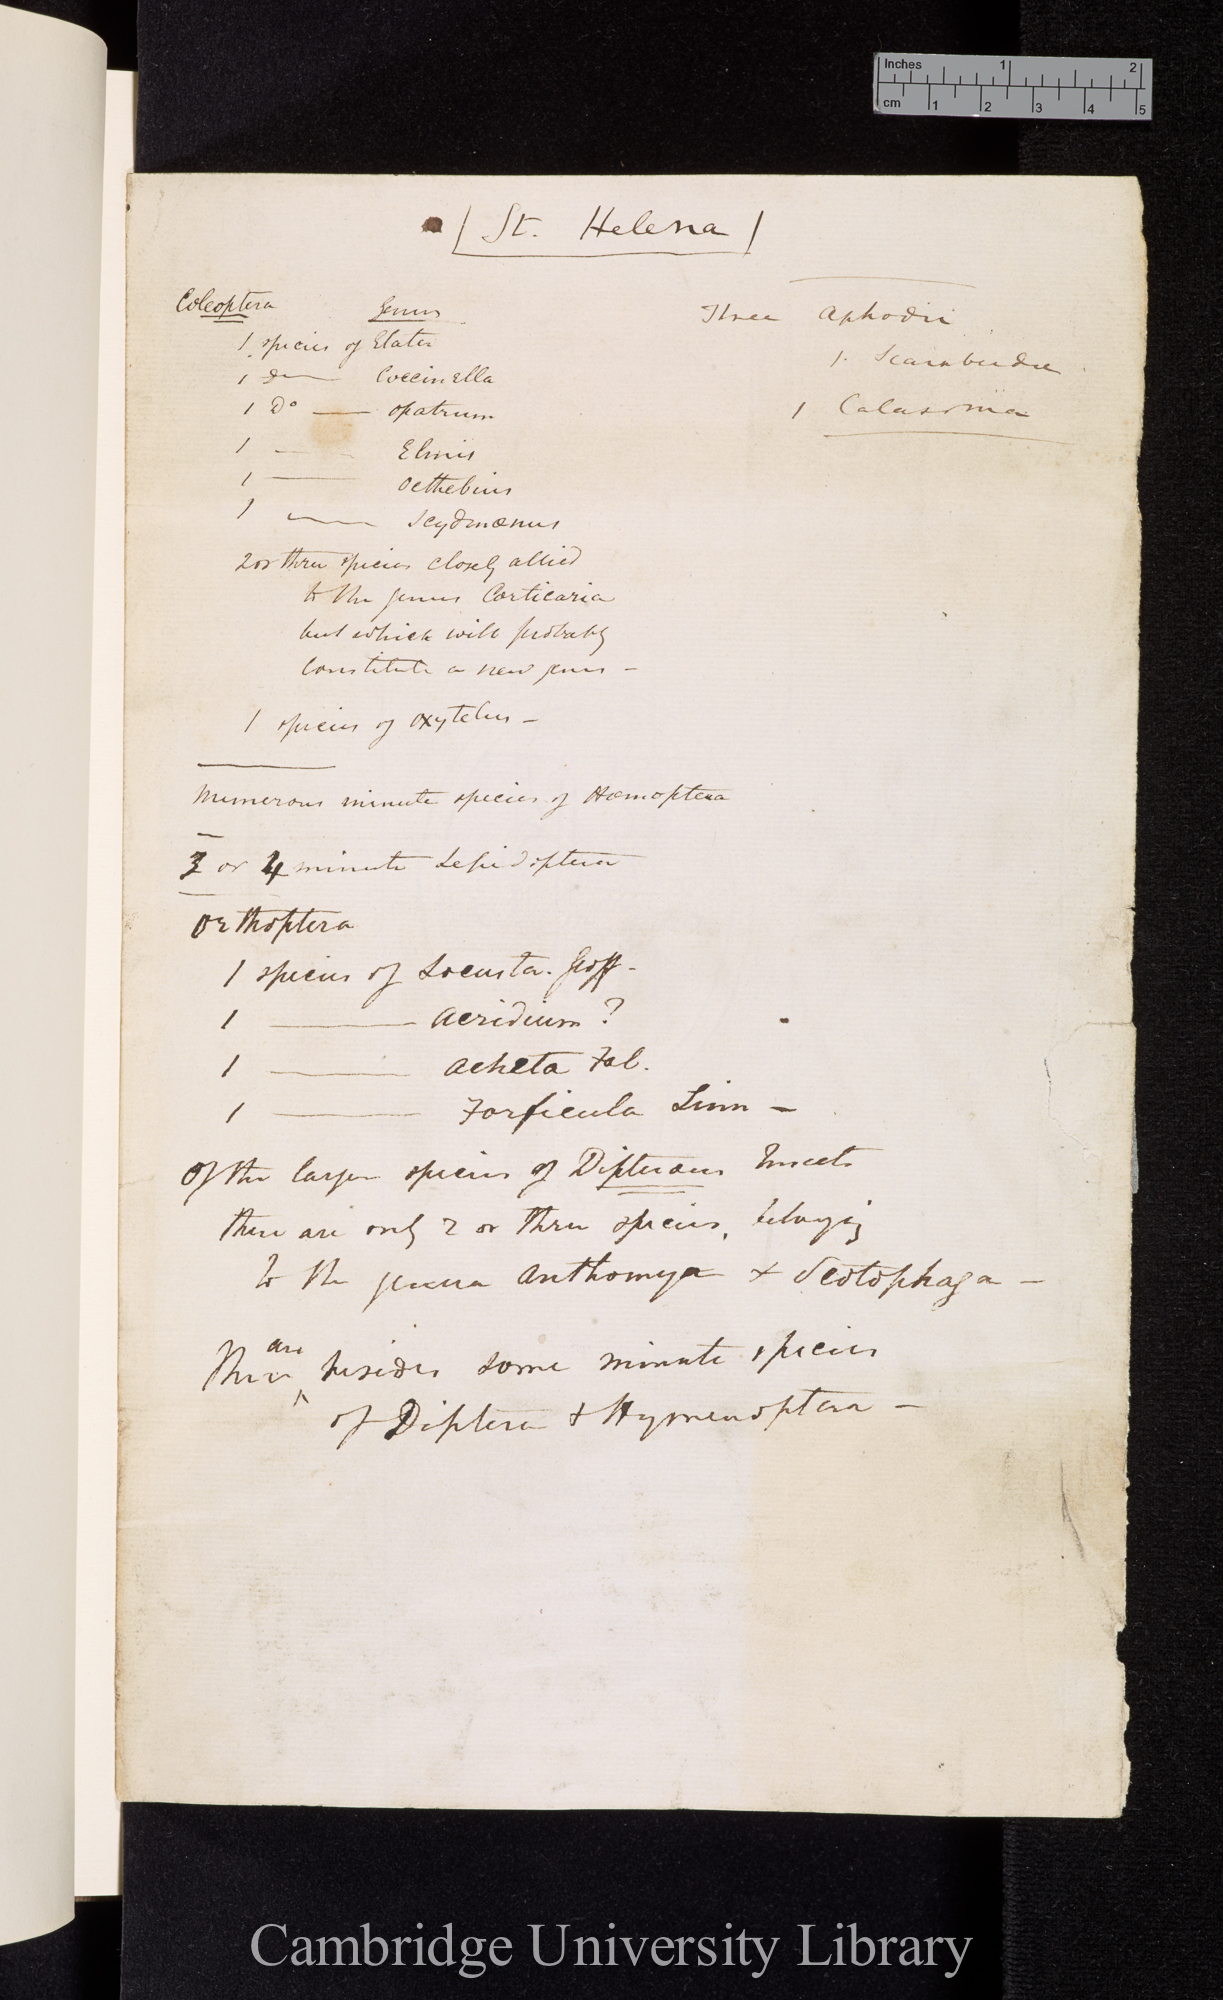 Inches 1 2
cm 1 2 3 4 5
St. Helena
Coleoptera Genus
1 species of Elater
1 do — Coccinella
1 Do — Opatrum
1 — Elmis
1 — Octhebius
1 — Scydmænus
2 or three species closely allied
to the genus Corticaria
but which will probably
constitute a new genus –
1 species of Oxytelus –
Three Aphodii
1. 
1 Calasoma
Numerous minute species of Hæmoptera
3 or 4 minute Lepidoptera
Orthoptera
1 species of Locusta. Geoff –
1 — Acridium ?
1 — Acheta Fab.
1 — Forficula Linn –
Of the larger species of Dipterous Insects
there are only 2 or three species, belonging
to the genera Anthomya & Scotophaga –
There are besides some minute species
of Diptera & Hymenoptera –
Cambridge University Library